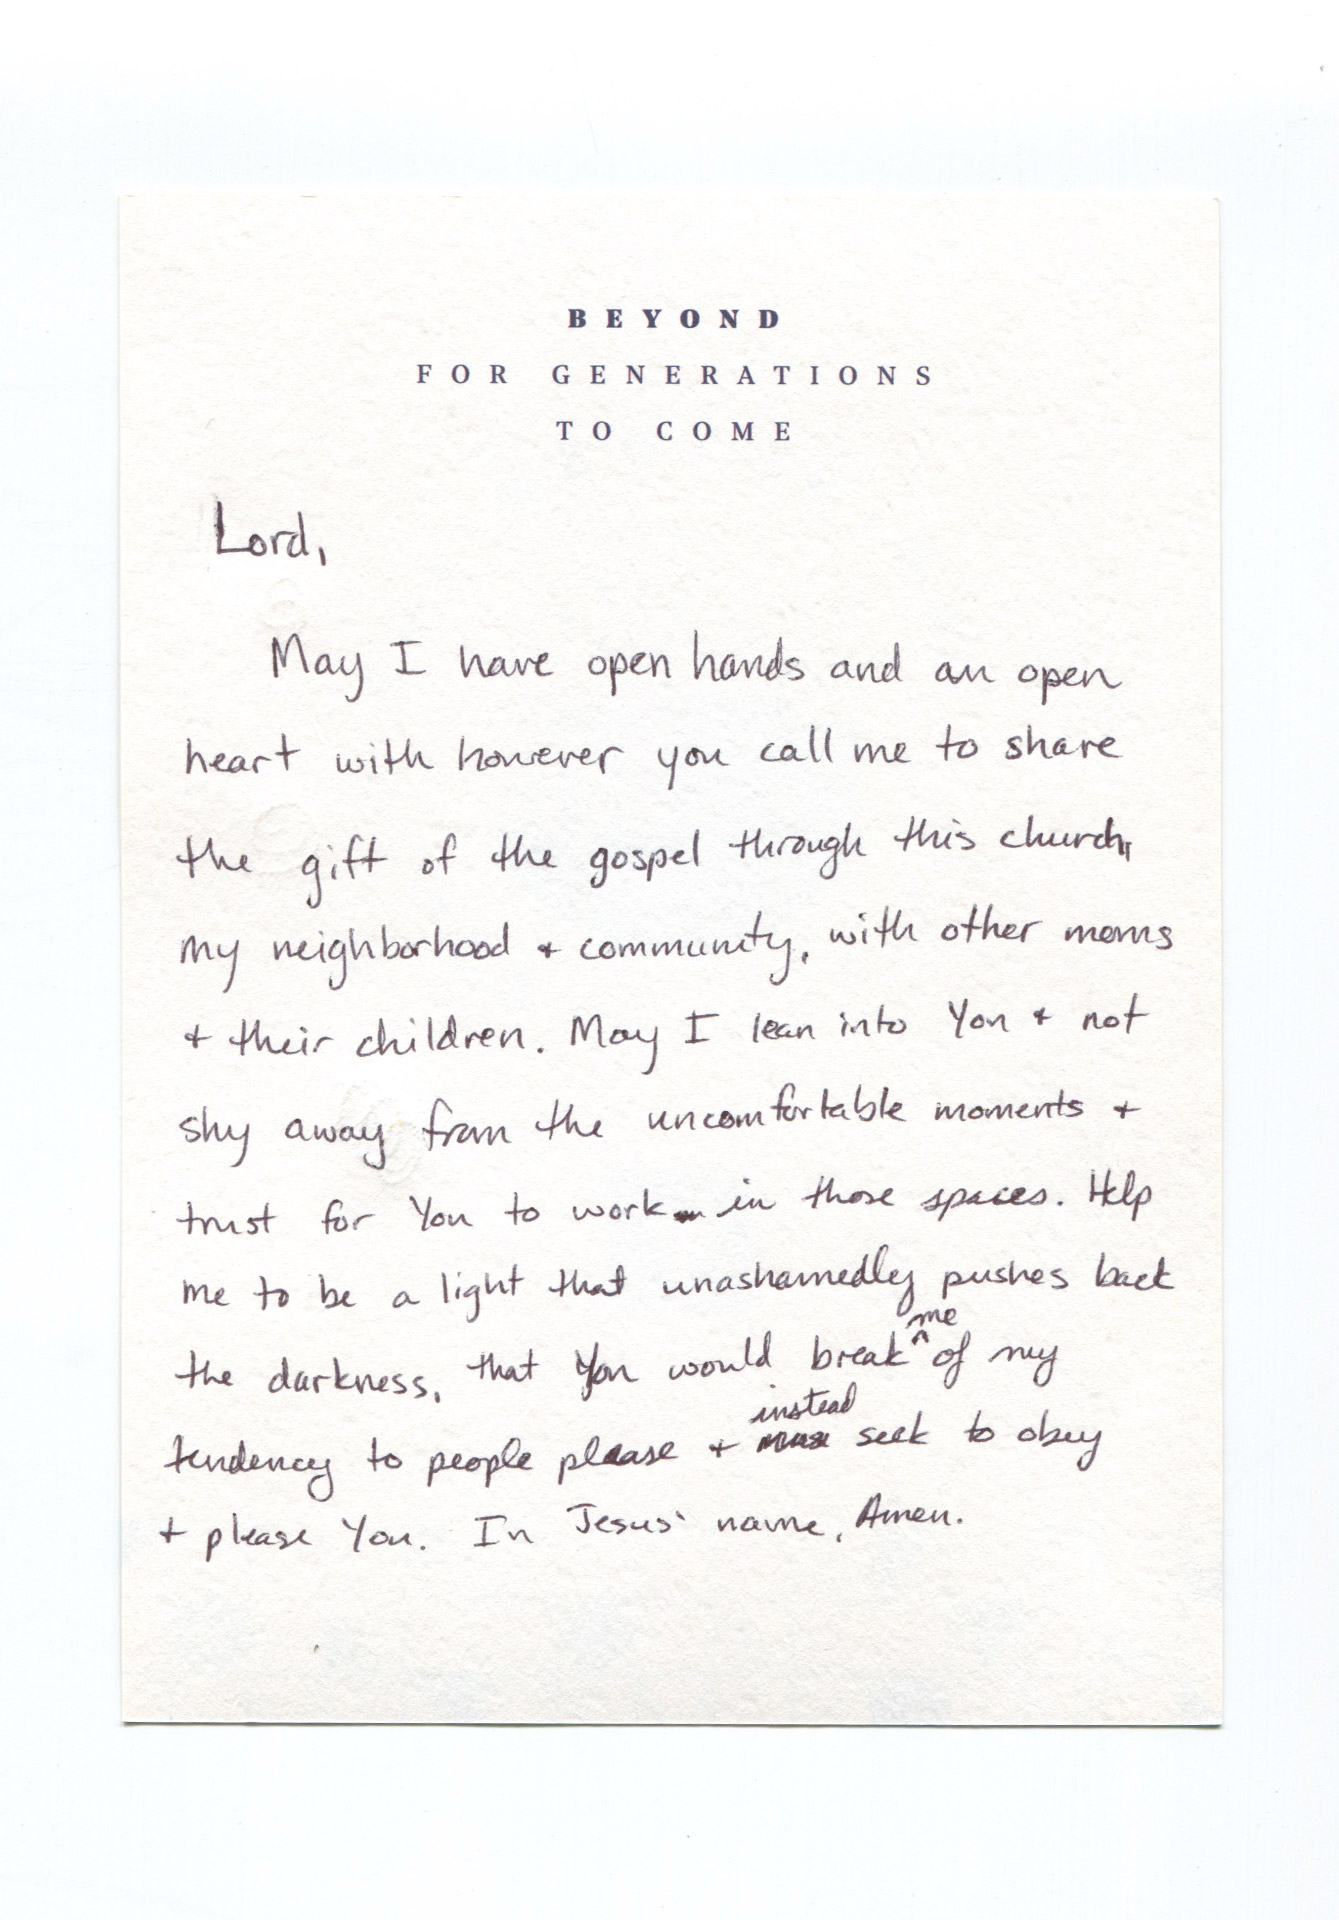 BEYOND
FOR GENERATIONS
TO COME
Lord,
May I have open hands and an open
heart with however you call me to share
the gift of the gospel through this church,
my neighborhood + community, with other moms
+ their children. May I lean into You + not
shy away from the uncomfortable moments +
trust for You to work in those spaces. Help
me to be a light that unashamedly pushes back
the darkness, that You would break me of my
tendency to people please + instead seek to obey
+ please You. In Jesus' name, Amen.